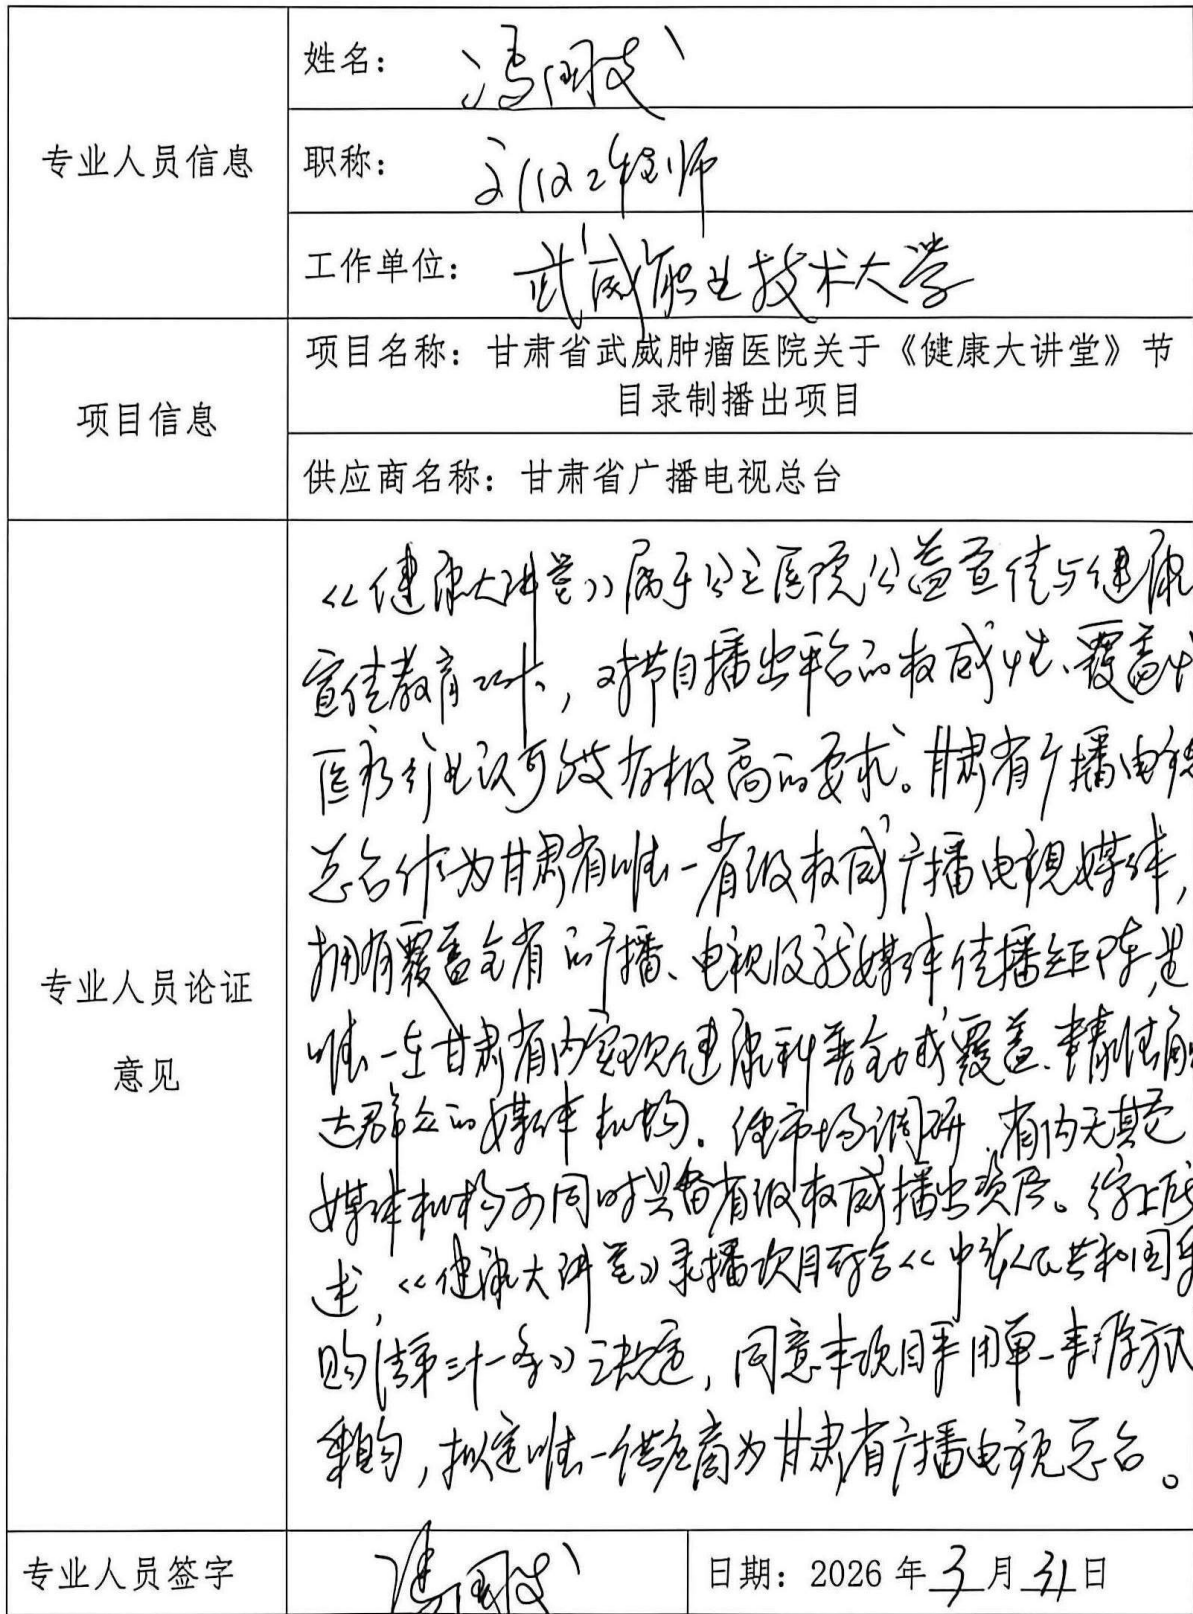 专业人员信息
姓名：冯国
职称：工程师
工作单位：武威职业技术大学
项目信息
项目名称：甘肃省武威肿瘤医院关于《健康大讲堂》节
目录制播出项目
供应商名称：甘肃省广播电视总台
专业人员论证
意见
《健康大讲堂》属于公立医院公益宣传与健康
宣传教育，对节目播出平台的权威性、覆盖
医疗行业认可度有极高的要求。甘肃省广播电视
总台作为甘肃省唯一省级权威广播电视媒体，
拥有覆盖全省的广播、电视及新媒体传播矩阵，是
唯一在甘肃省内实现健康科普全域覆盖、精准触
达群众的媒体机构。经市场调研，省内无其它
媒体机构可同时具备省级权威播出资质。综上所
述，《健康大讲堂》录播项目符合《中华人民共和国采
购法第三十一条》之规定，同意本项目采用单一来源方式
采购，拟定唯一供应商为甘肃省广播电视总台。
专业人员签字
冯国
日期：2026年3月31日